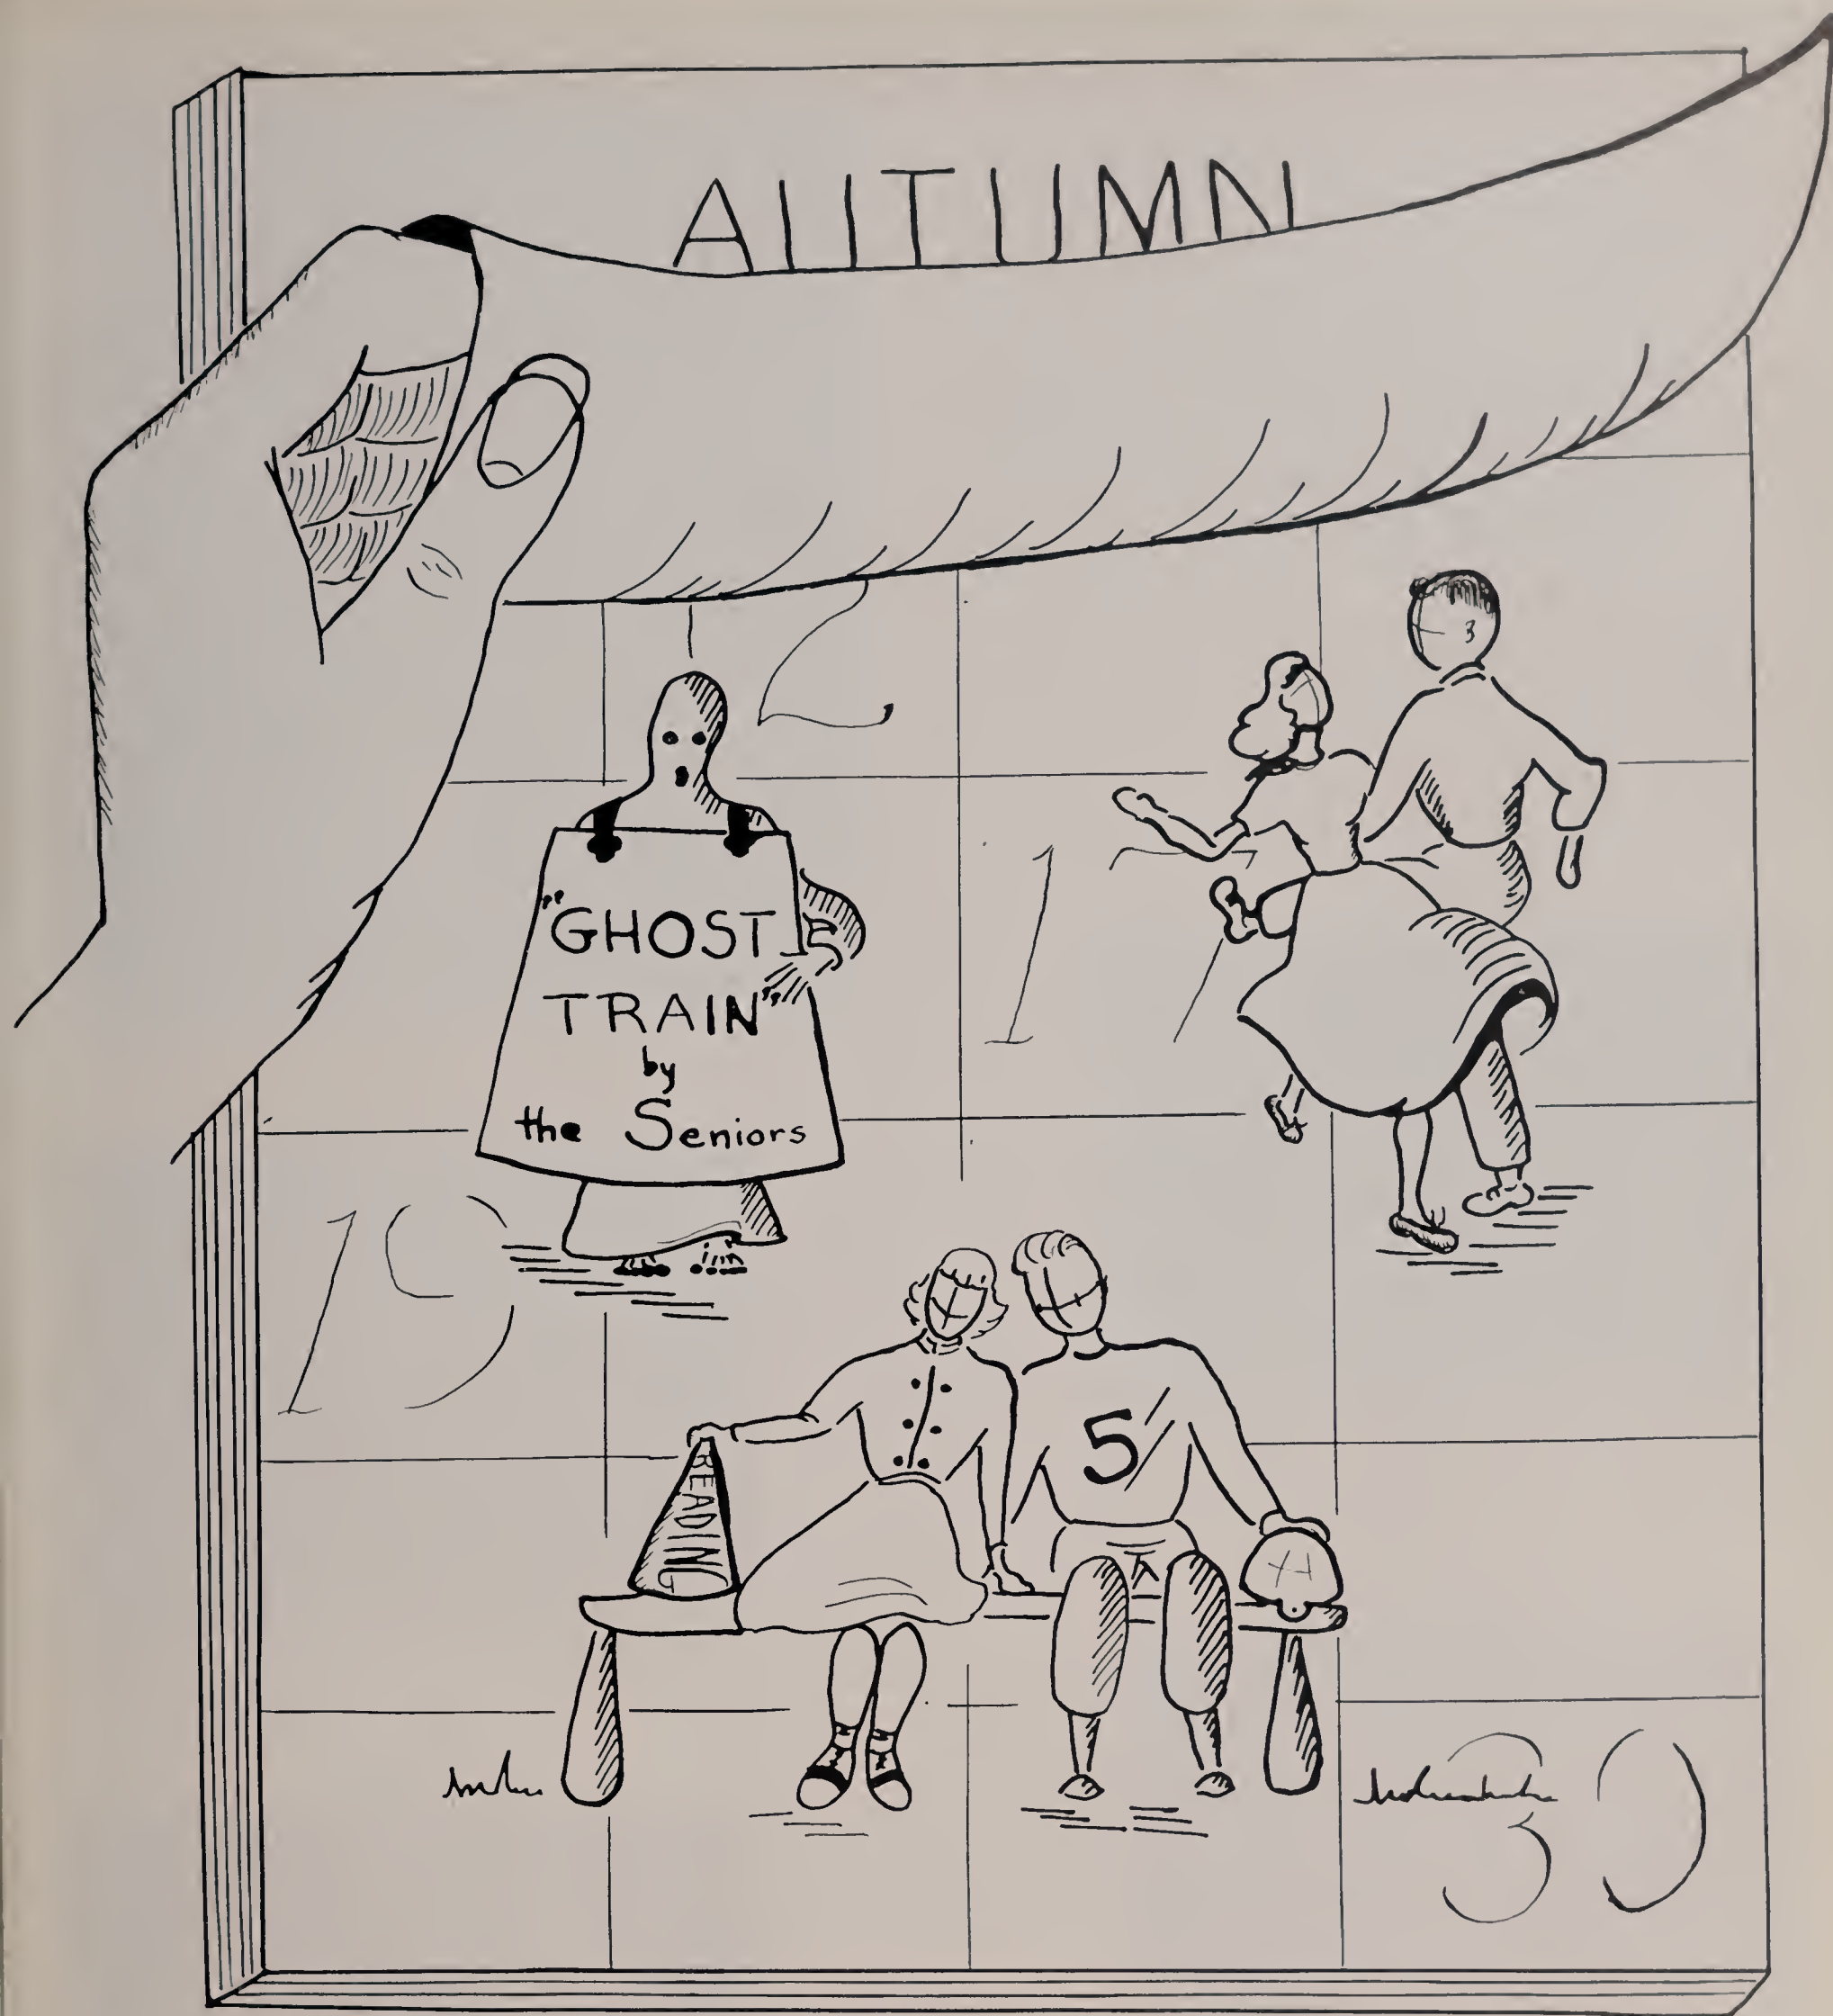 AUTUMN
2
"GHOST
TRAIN"
by
the Seniors
17
19
5
READING
30